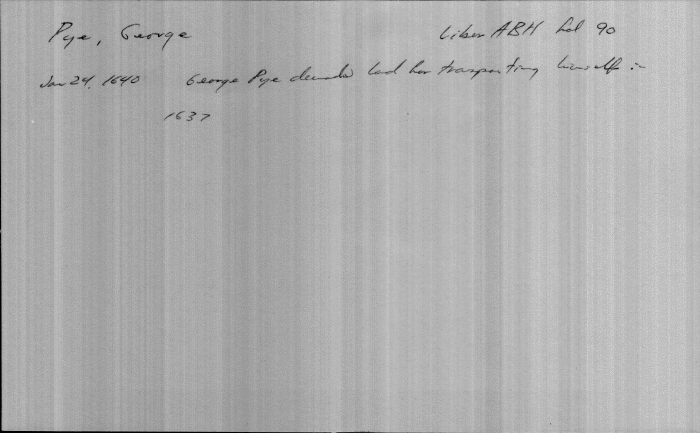 Pye, George Liber ABH fol 90
Jan 24, 1640 George Pye demands land for transporting himself in
1637